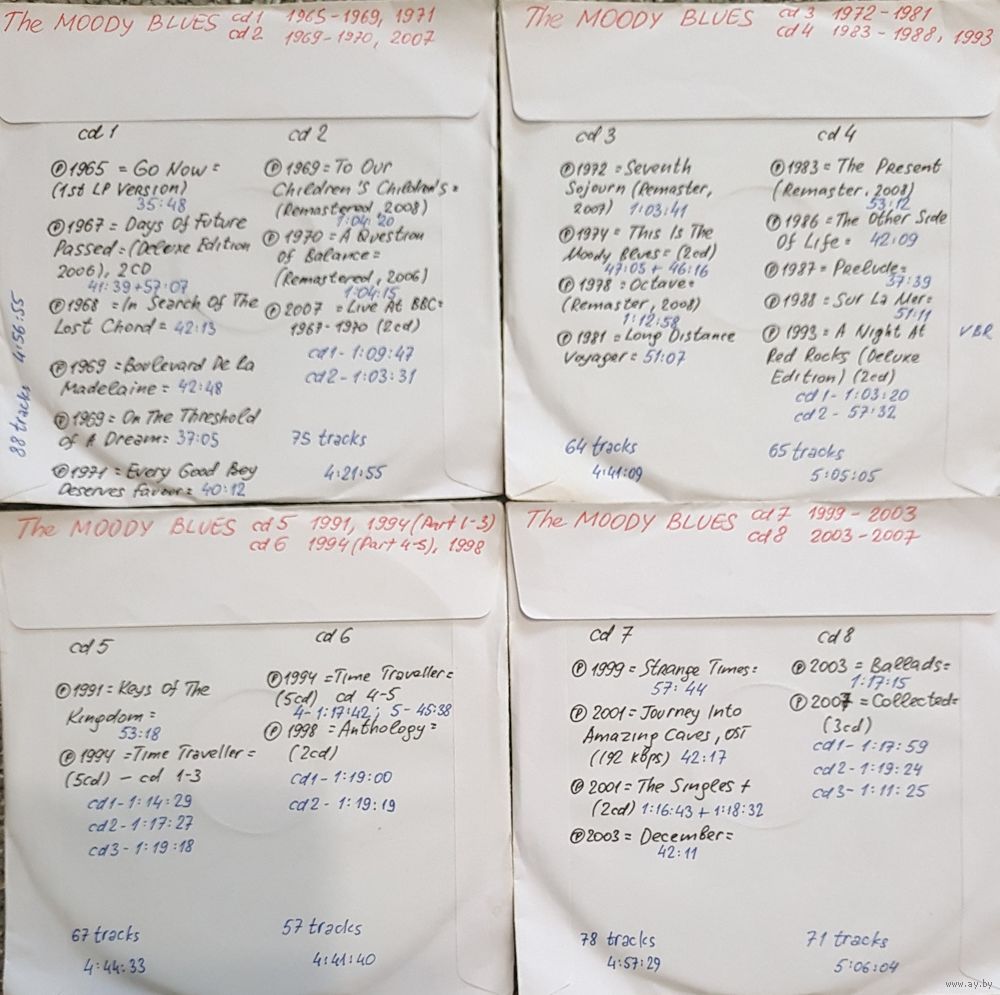 The MOODY BLUES cd 1 1965-1969, 1971
cd 2 1969-1970, 2007
cd 1
Ⓟ 1965 = Go Now =
(1st LP Version)
35:48
Ⓟ 1967 = Days Of Future
Passed = (Deluxe Edition
2006), 2CD
41:39 + 57:07
Ⓟ 1968 = In Search Of The
Lost Chord = 42:13
Ⓟ 1969 = Boulevard De La
Madelaine = 42:48
Ⓟ 1969 = On The Threshold
of A Dream = 37:05
Ⓟ 1971 = Every Good Boy
Deserves Favour = 40:12
88 tracks 4:56:55
cd 2
Ⓟ 1969 = To Our
Children's Children's =
(Remastered, 2008)
1:04:20
Ⓟ 1970 = A Question
of Balance =
(Remastered, 2006)
1:04:15
Ⓟ 2007 = Live At BBC =
1967-1970 (2cd)
cd1 - 1:09:47
cd2 - 1:03:31
75 tracks
4:21:55
The MOODY BLUES cd 3 1972-1981
cd 4 1983-1988, 1993
cd 3
Ⓟ 1972 = Seventh
Sojourn (Remaster,
2007) 1:03:41
Ⓟ 1974 = This Is The
Moody Blues = (2cd)
47:05 + 46:16
Ⓟ 1978 = Octave =
(Remaster, 2008)
1:12:58
Ⓟ 1981 = Long Distance
Voyager = 51:07
64 tracks
4:41:09
cd 4
Ⓟ 1983 = The Present
(Remaster, 2008)
53:12
Ⓟ 1986 = The Other Side
Of Life = 42:09
Ⓟ 1987 = Prelude =
37:39
Ⓟ 1988 = Sur La Mer =
51:11
Ⓟ 1993 = A Night At
Red Rocks (Deluxe
Edition) (2cd)
cd 1 - 1:03:20
cd 2 - 57:32
VBR
65 tracks
5:05:05
The MOODY BLUES cd 5 1991, 1994 (Part 1-3)
cd 6 1994 (Part 4-5), 1998
cd 5
Ⓟ 1991 = Keys Of The
Kingdom =
53:18
Ⓟ 1994 = Time Traveller =
(5cd) - cd 1-3
cd1 - 1:14:29
cd2 - 1:17:27
cd3 - 1:19:18
67 tracks
4:44:33
cd 6
Ⓟ 1994 = Time Traveller =
(5cd) cd 4-5
4 - 1:17:42; 5 - 45:38
Ⓟ 1998 = Anthology =
(2cd)
cd1 - 1:19:00
cd2 - 1:19:19
57 tracks
4:41:40
The MOODY BLUES cd 7 1999-2003
cd 8 2003-2007
cd 7
Ⓟ 1999 = Strange Times =
57:44
Ⓟ 2001 = Journey Into
Amazing Caves, OST
(192 kbps) 42:17
Ⓟ 2001 = The Singles +
(2cd) 1:16:43 + 1:18:32
Ⓟ 2003 = December =
42:11
78 tracks
4:57:29
cd 8
Ⓟ 2003 = Ballads =
1:17:15
Ⓟ 2007 = Collected =
(3cd)
cd1 - 1:17:59
cd2 - 1:19:24
cd3 - 1:11:25
71 tracks
5:06:04
www.ay.by